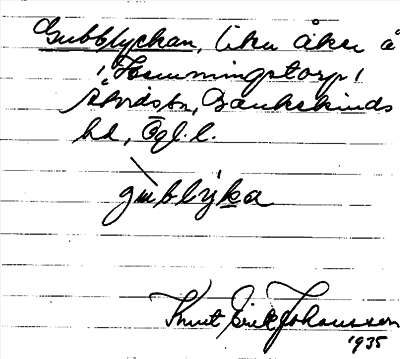 Gubblyckan, liten åker å
Hemmingstorp
Åtvidsbn, Bankekinds
hd, Ögl. l.
gu̇blẏka
Knut Erik Johansson
1935